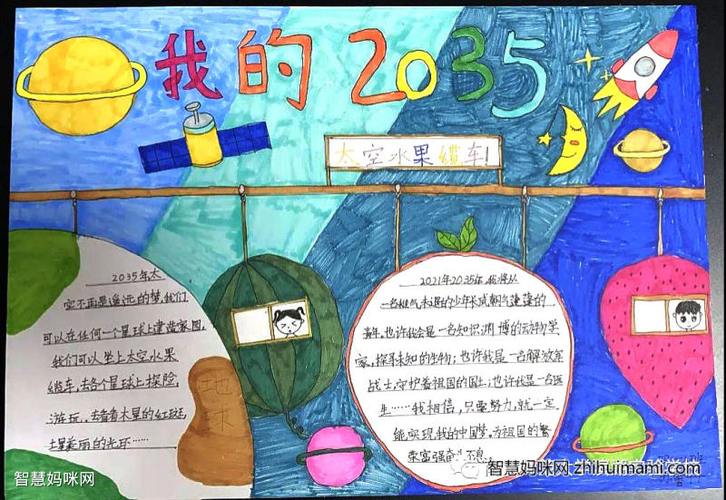 我的2035
太空水果缆车!
2035年太
空不再是遥远的梦,我们
可以在任何一个星球上建造家园,
我们可以坐上太空水果
缆车,去各个星球上探险,
游玩,去看看木星的红斑,
土星美丽的光环……
地球
2021年2035年,我将从
一名稚气未退的少年长成朝气蓬蓬的
青年,也许我会是一名知识渊博的动物学
家,探寻未知的生物;也许我是一名解放军
战士,守护着祖国的国土;也许我是一名医
生……我相信,只要努力,就一定
能实现我的中国梦,为祖国的繁
荣富强奋斗不息.
智慧妈咪网
智慧妈咪网 zhihuimami.com